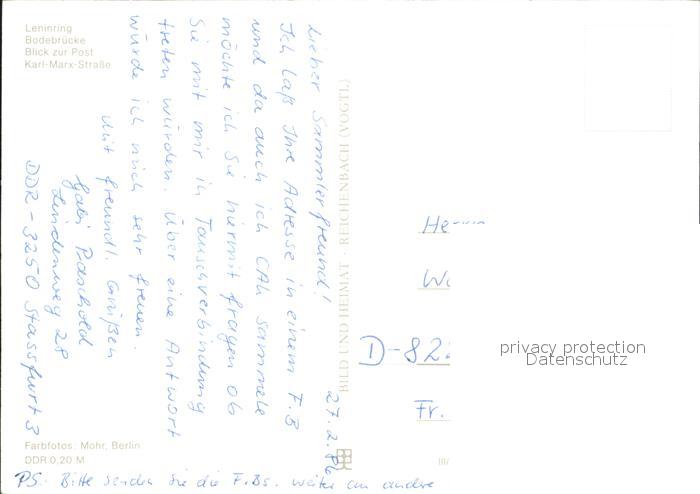 Leninring
Bodebrücke
Blick zur Post
Karl-Marx-Straße
27.2.86
Lieber Sammlerfreund!
Ich laß Ihre Adresse in einem F.B
und da auch ich CAh sammele
möchte ich Sie hiermit fragen ob
Sie mit mir in Tauschverbindung
treten würden. Über eine Antwort
würde ich mich sehr freuen.
Mit freundl. Grüßen
Gabi Paschold
Lindenweg 28
DDR-3250 Stassfurt 3
BILD UND HEIMAT · REICHENBACH (VOGTL)
He
Wo
D-82
Fr.
privacy protection
Datenschutz
Farbfotos: Mohr, Berlin
DDR 0,20 M
III/
PS: Bitte senden Sie die F.Bs. weiter an andere